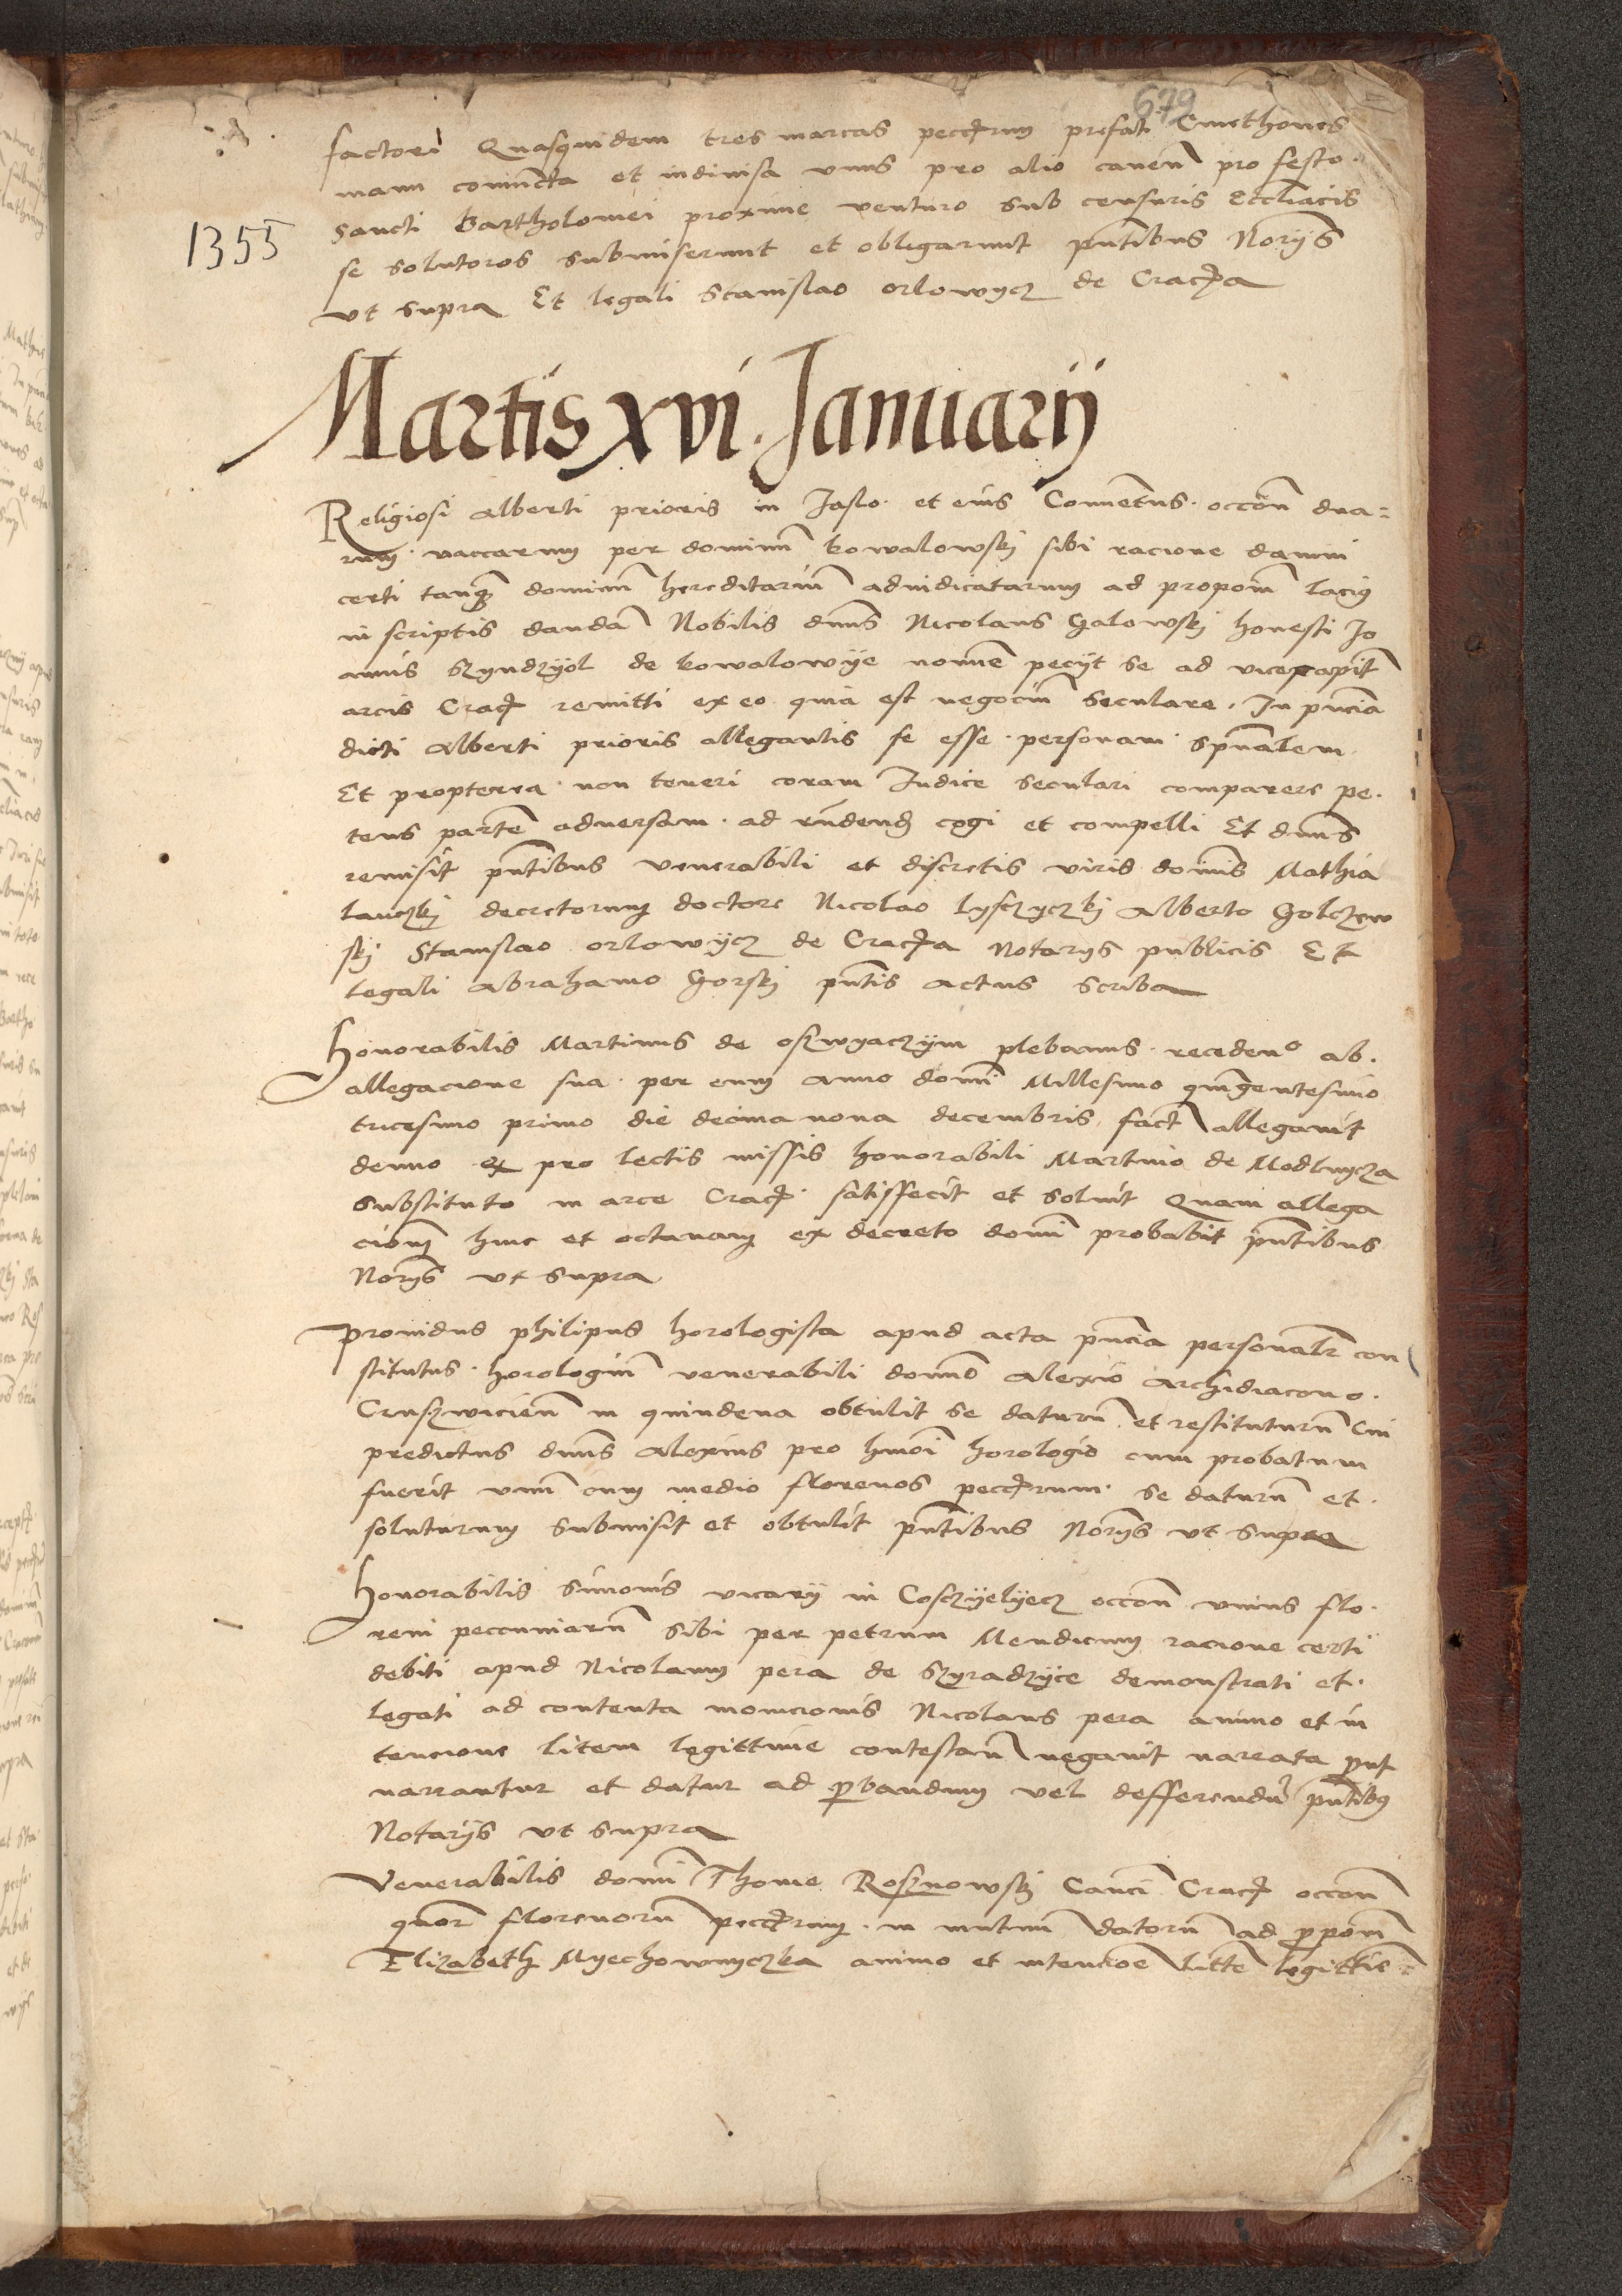 679
factori Quasquidem tres marcas pecc̄rum prefati Cmethones
manu coniuncta et indivisa unus pro alio caven̄ pro festo
Sancti Bartholomei proxime venturo sub censuris Eccl̄iacis
1355
se soluturos submiserunt et obligarunt pn̄tibus Norijs
ut supra Et legali Stanislao orlowycz de Cracovia
Martis xvi Januarij
Religiosi Alberti prioris in Jaslo et eius Conventus occōn dua=
rum vaccarum per dominū kowalowskj sibi racione damni
certi tanq̄ dominū hereditariū adiudicatarum ad propon̄
in scriptis dandā Nobilis dn̄s Nicolaus Galowskj honesti Jo
annis Szyndzyol de kowalowije nomine pecijt se ad vicecapit̄
arcis Crac̄ remitti ex eo quia est negociū Seculare. In pn̄cia
dicti Alberti prioris allegantis se esse personam spūalem
Et propterea non teneri coram Judice seculari comparere pe
tens partē adversam ad rn̄dend cogi et compelli Et dn̄s
remisit pn̄tibus venerabili et discretis viris dominis Mathia
lanczkj decretorum doctore Nicolao lysczyczkj Alberto Golczew
skj Stanislao orlowijcz de Cracovia Notarijs publicis Et
legali Abrahamo Gorskj pn̄tis actus scriba
Honorabilis Martinus de oszwyaczijm plebanus recedendo ab
allegacione sua per eum anno domini Millesimo quingentesimo
tricesimo primo die decima nona decembris fact̄ allegavit
denuo q̄ pro lectis missis honorabili Martino de Modlnycza
substituto in arce Crac̄ satisfecit et solvit Quam allega
cionem hinc et octavam ex decreto domini probabit pn̄tibus
Norijs ut supra
Providus philipus horologista apud acta pn̄cia personalr̄ con
stitutus horologiū venerabili domino Alexio Archidiacono
Cruszwicien̄ in quindena obtulit se daturū et restituturū Cui
predictus dn̄s Alexius pro hm̄oi horologio cum probatum
fuerit unū cum medio florenos pecc̄rum se daturū et
soluturum submisit et obtulit pn̄tibus Norijs ut supra
Honorabilis Simonis vicarij in Cosczijelijecz occōn unius flo
reni peccuniarū sibi per petrum Mendicum racione certi
debiti apud Nicolaum pera de Szyradzijce demonstrati et
legati ad contenta monicionis Nicolaus pera animo et in
tencione litem legittime contestan̄ negavit narrata prout
narrantur et datur ad probandum vel defferendū pn̄tibus
Notarijs ut supra
Venerabilis domini Thome Rosznowskj Can̄ci Crac̄ occōn
quor̄ florenorū pecc̄rum in mutuū datorū ad propon̄
Elizabeth Myechownyczka animo et intencōe littē legittīe